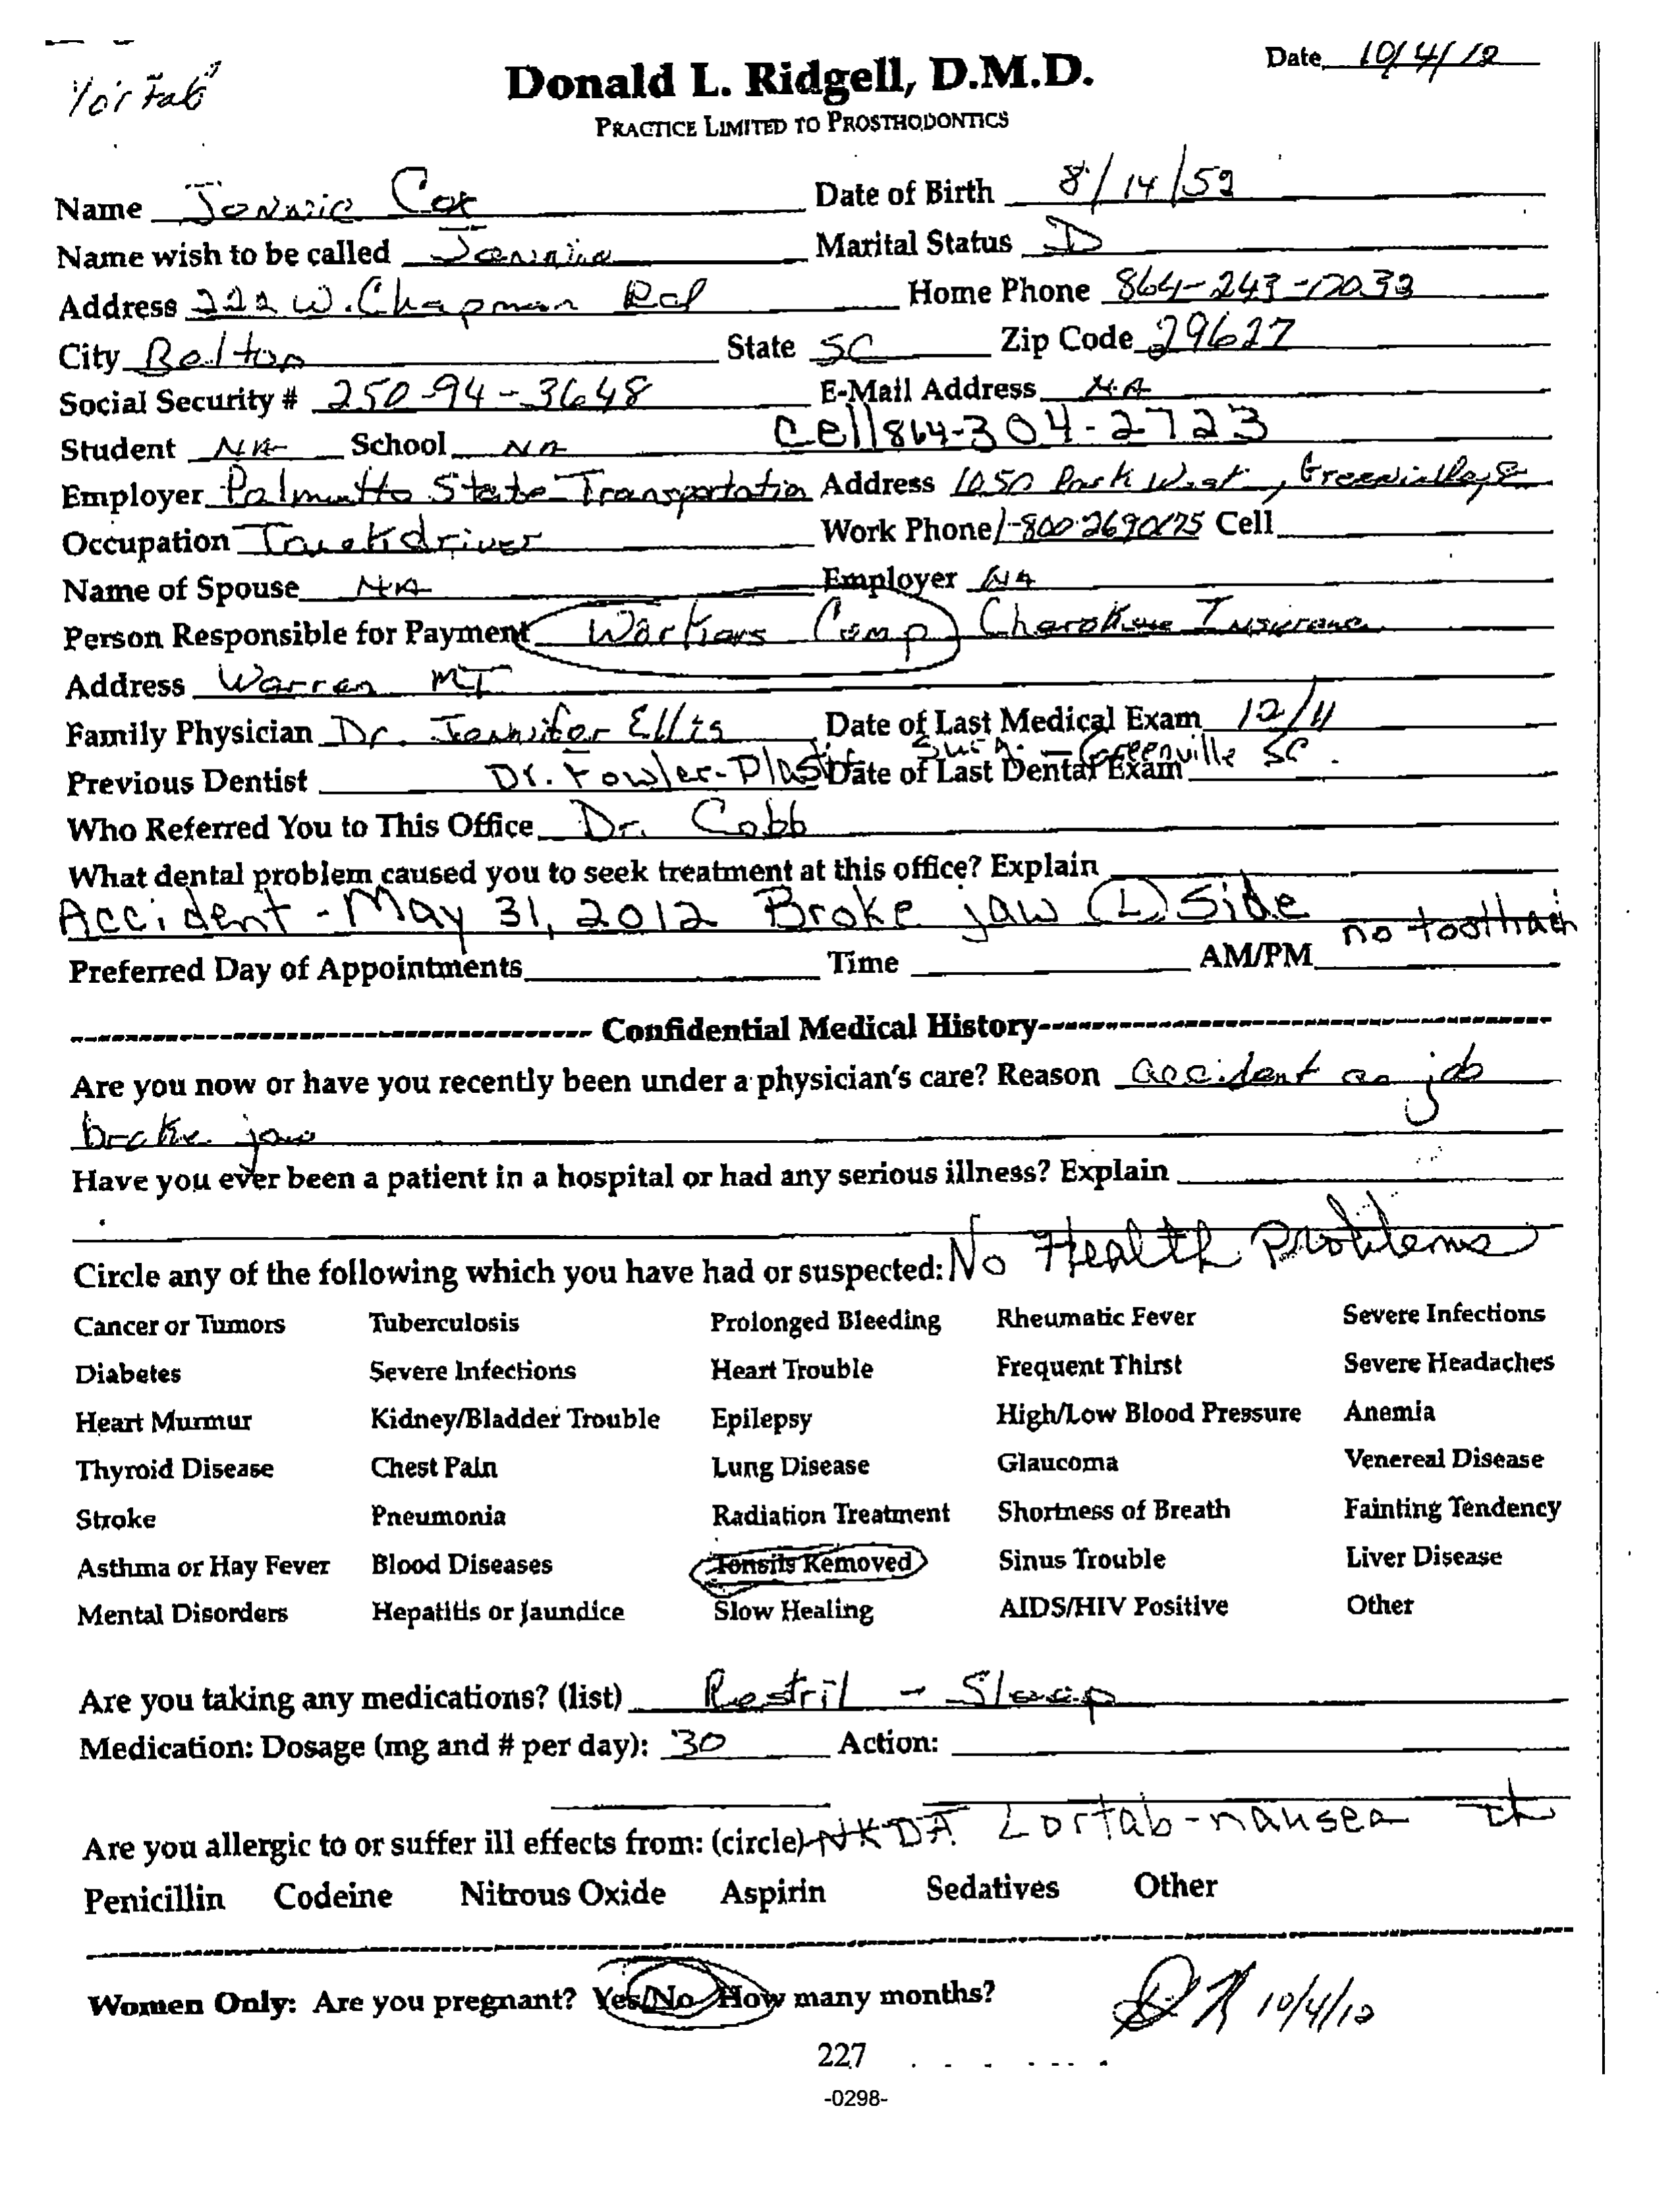 Date 10/4/12
Donald L. Ridgell, D.M.D.
PRACTICE LIMITED TO PROSTHODONTICS
Name Jennie Cox Date of Birth 8/14/52
Name wish to be called Jennie Marital Status D
Address 222 W. Chapman Rd Home Phone 864-243-
City Belton State SC Zip Code 29627
Social Security # 250-94-3648 E-Mail Address N.A
Student NA School NA Cell 864-304-2723
Employer Palmetto State Transportation Address 1050 Park West, Greenville, SC
Occupation Truckdriver Work Phone 1-800-2690175 Cell
Name of Spouse NA Employer NA
Person Responsible for Payment Workers Comp Cherokee Insurance
Address Warren MI
Family Physician Dr. Jennifer Ellis Date of Last Medical Exam 12/11
Previous Dentist Dr. Fowler-Plastic Surg. - Greenville SC. Date of Last Dental Exam
Who Referred You to This Office Dr. Cobb
What dental problem caused you to seek treatment at this office? Explain
Accident - May 31, 2012 Broke jaw (L) Side no toothach
Preferred Day of Appointments Time AM/PM
Confidential Medical History
Are you now or have you recently been under a physician's care? Reason accident on job
broke jaw
Have you ever been a patient in a hospital or had any serious illness? Explain
Circle any of the following which you have had or suspected: No Health Problems
Cancer or Tumors Tuberculosis Prolonged Bleeding Rheumatic Fever Severe Infections
Diabetes Severe Infections Heart Trouble Frequent Thirst Severe Headaches
Heart Murmur Kidney/Bladder Trouble Epilepsy High/Low Blood Pressure Anemia
Thyroid Disease Chest Pain Lung Disease Glaucoma Venereal Disease
Stroke Pneumonia Radiation Treatment Shortness of Breath Fainting Tendency
Asthma or Hay Fever Blood Diseases Tonsils Removed Sinus Trouble Liver Disease
Mental Disorders Hepatitis or Jaundice Slow Healing AIDS/HIV Positive Other
Are you taking any medications? (list) Restril - Sleep
Medication: Dosage (mg and # per day): 30 Action:
Are you allergic to or suffer ill effects from: (circle) NKDA Lortab-nausea
Penicillin Codeine Nitrous Oxide Aspirin Sedatives Other
Women Only: Are you pregnant? Yes/No How many months? 10/4/12
227
-0298-